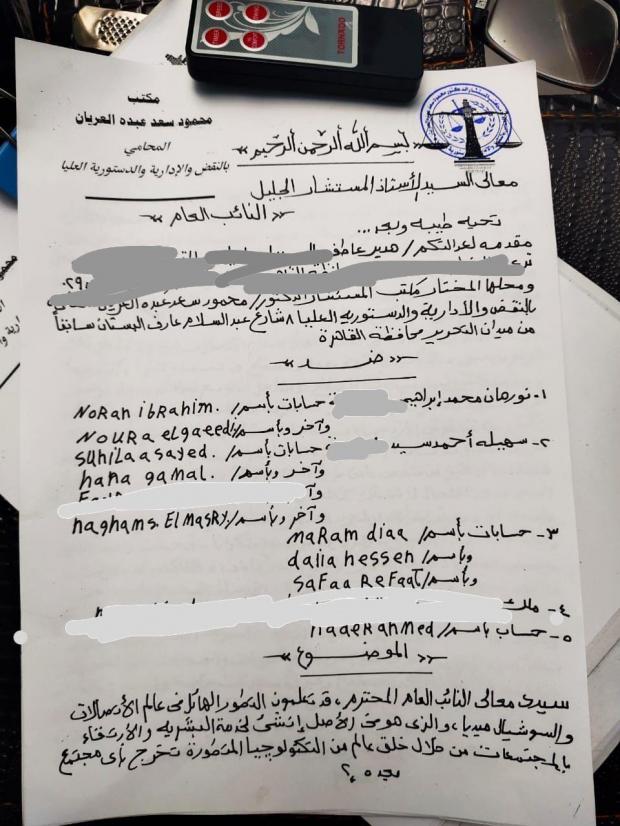 TORNADO
مكتب
محمود سعد عبده العريان
المحامي
بالنقض والإدارية والدستورية العليا
بسم الله الرحمن الرحيم
معالى السيد الأستاذ المستشار الجليل
النائب العام
تحيه طيبه وبعد...
مقدمه لعدالتكم / هدير عاطف
ومحلها المختار مكتب المستشار الدكتور / محمود سعد عبده العريان
بالنقض والأدارية والدستوريه العليا ٨ شارع عبد السلام عارف البستان سابقاً
من ميدان التحرير محافظة القاهرة
ضد
١- نورهان محمد إبراهيم حسابات بأسم / NORAN iBRAHIM.
وآخر وبأسم / NOURA elgaeedi
٢- سهيله أحمد سيد حسابات بأسم / SUhiLaaSayed.
وآخر وبأسم / hana gamal.
وآ
وآخر وبأسم / haghams. ELMasRy
٣- حسابات بأسم / MaRam diaa
وبأسم / dalia hessen
وبأسم / SaFaa ReFaaT
٤- ملك
٥- حساب بأسم / hadeRahMed
الموضوع
سيدى معالى النائب العام المحترم، قد تعلمون التطور الهائل فى عالم الأتصالات
والسوشيال ميديا، والذى هو فى الأصل إنشئ لخدمة البشريه والأرتقاء
بالمجتمعات من خلال خلق عالم من التكنولوجيا المتطورة تخرج بأى مجتمع